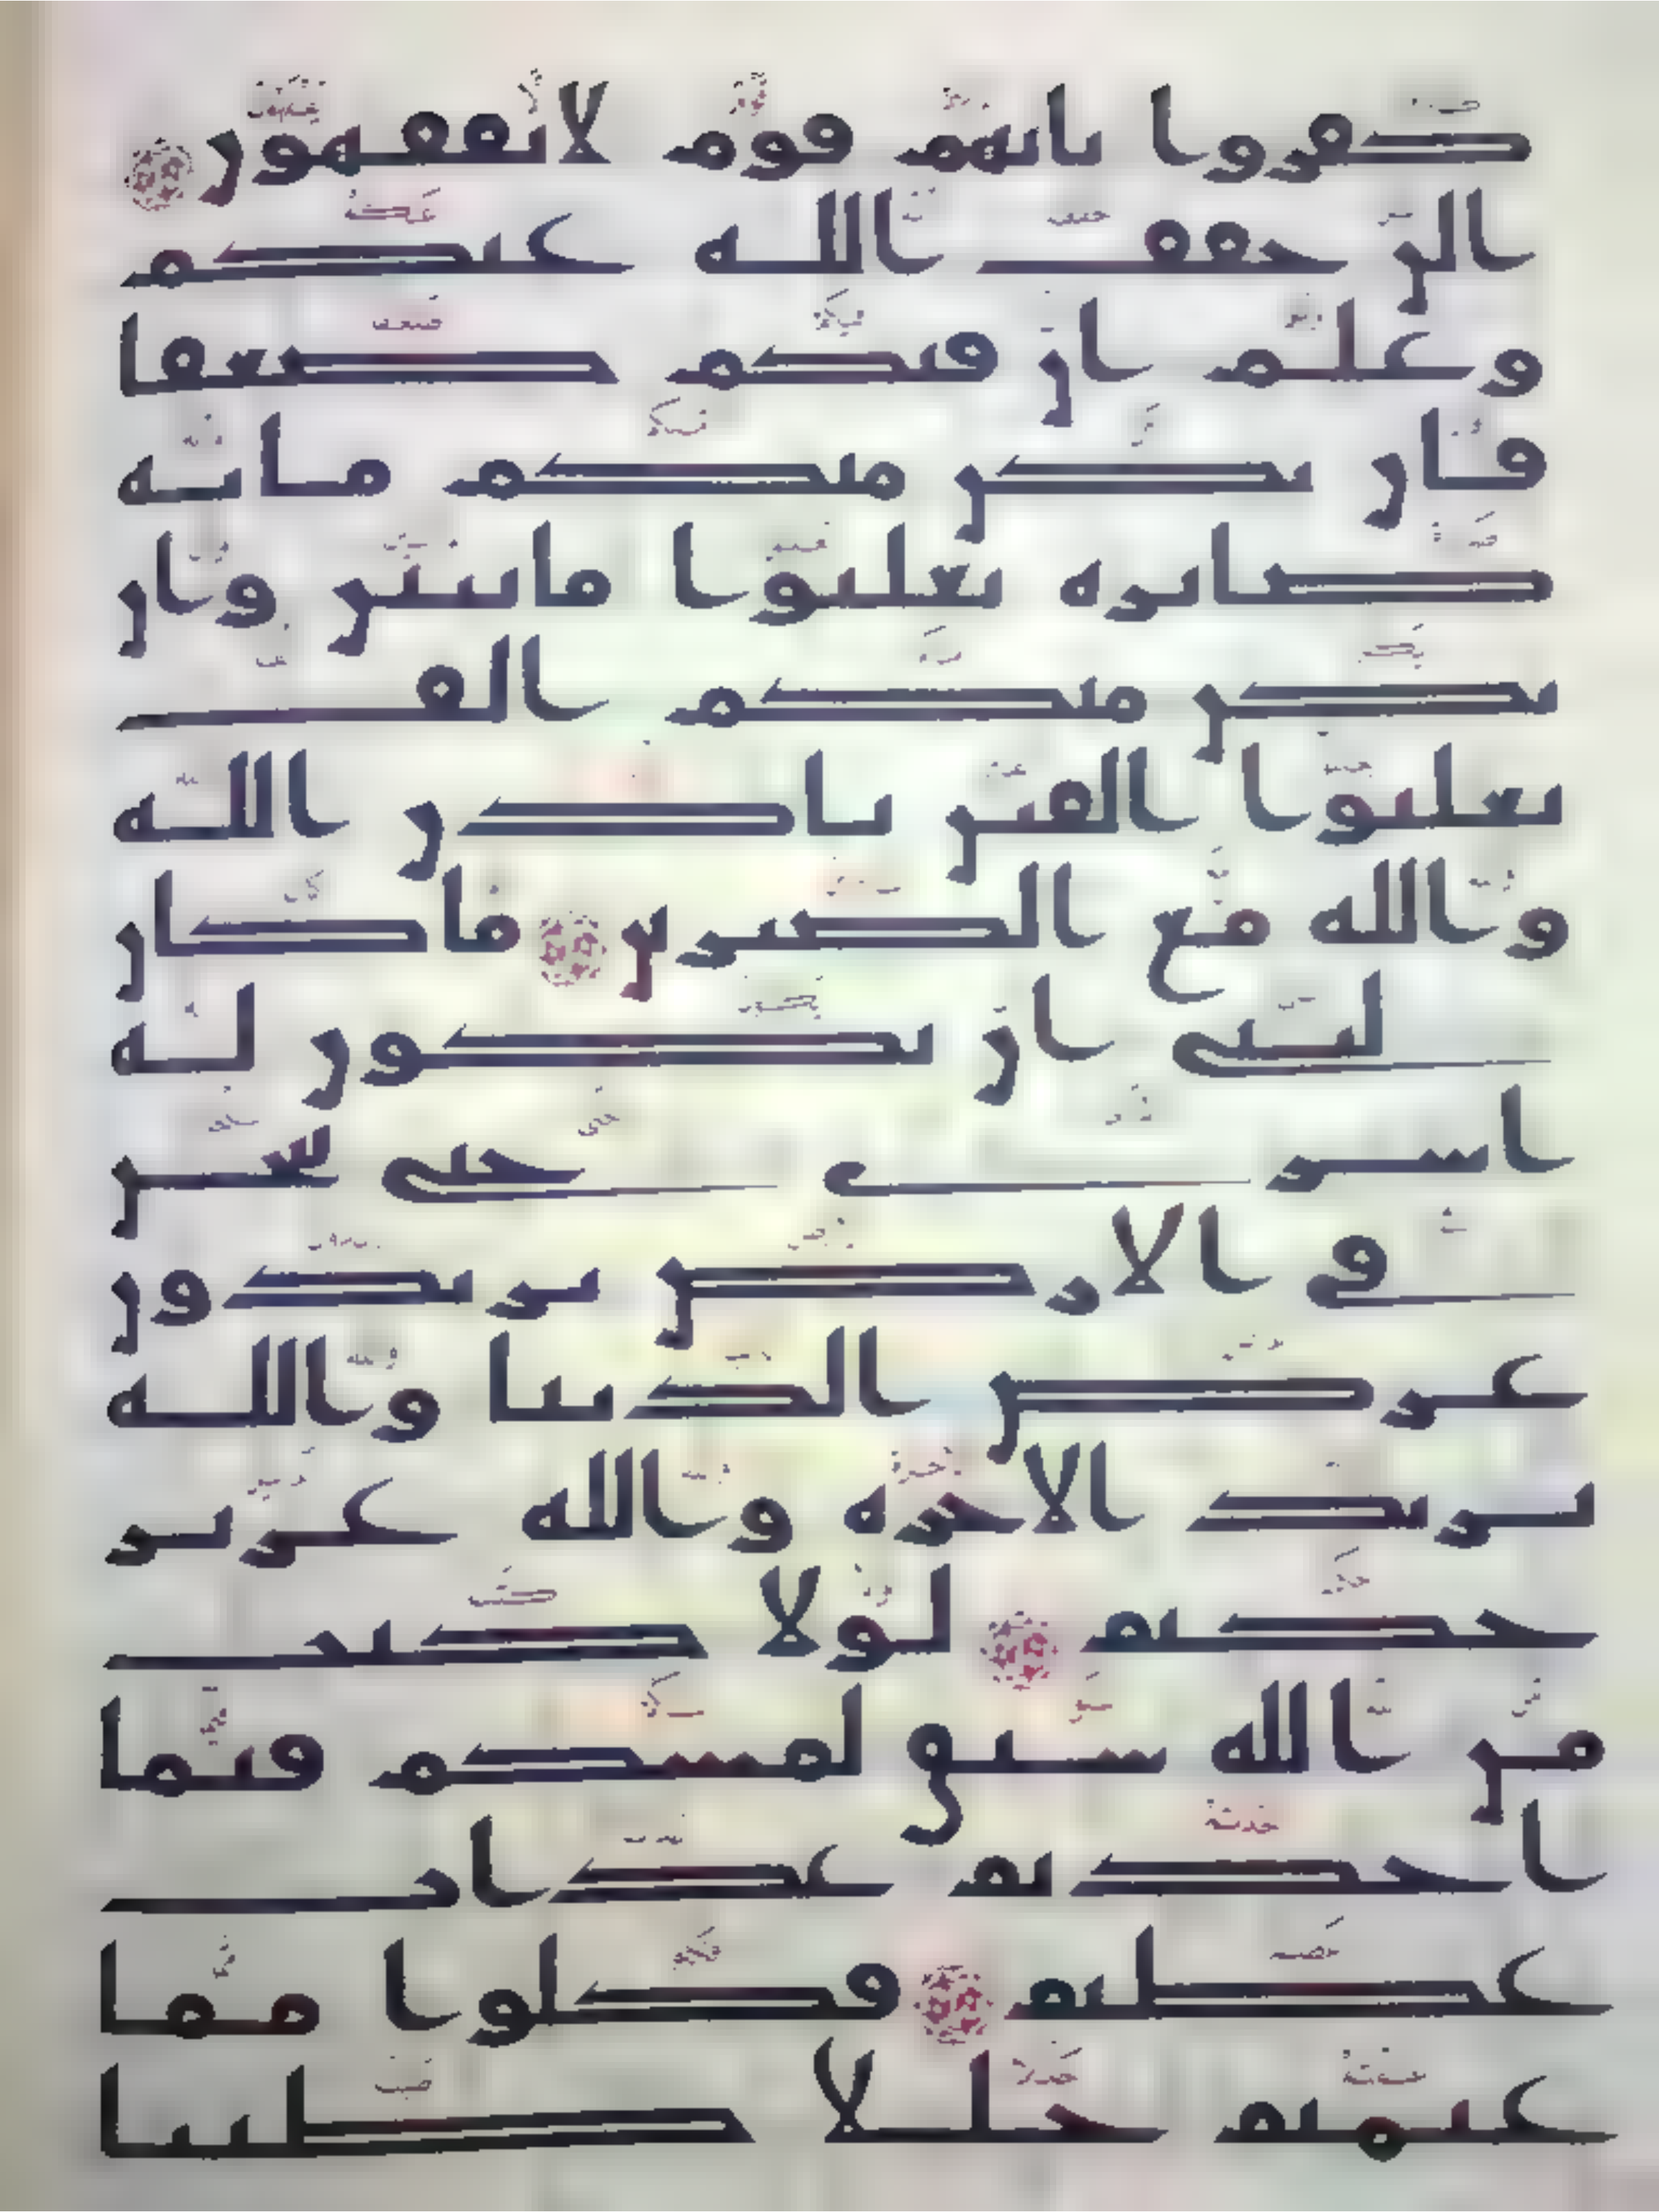 كفروا بانهم قوم لا يفقهون
الن خفف الله عنكم
وعلم ان فيكم ضعفا
فان يكن منكم مائة
صابرة يغلبوا مائتين وان
يكن منكم الف
يغلبوا الفين باذن الله
والله مع الصبرين ما كان
لنبي ان يكون له
اسرى حتى يثخن
في الارض تريدون
عرض الدنيا والله
يريد الاخرة والله عزيز
حكيم لولا كتب
من الله سبق لمسكم فيما
اخذتم عذاب
عظيم فكلوا مما
غنمتم حللا طيبا